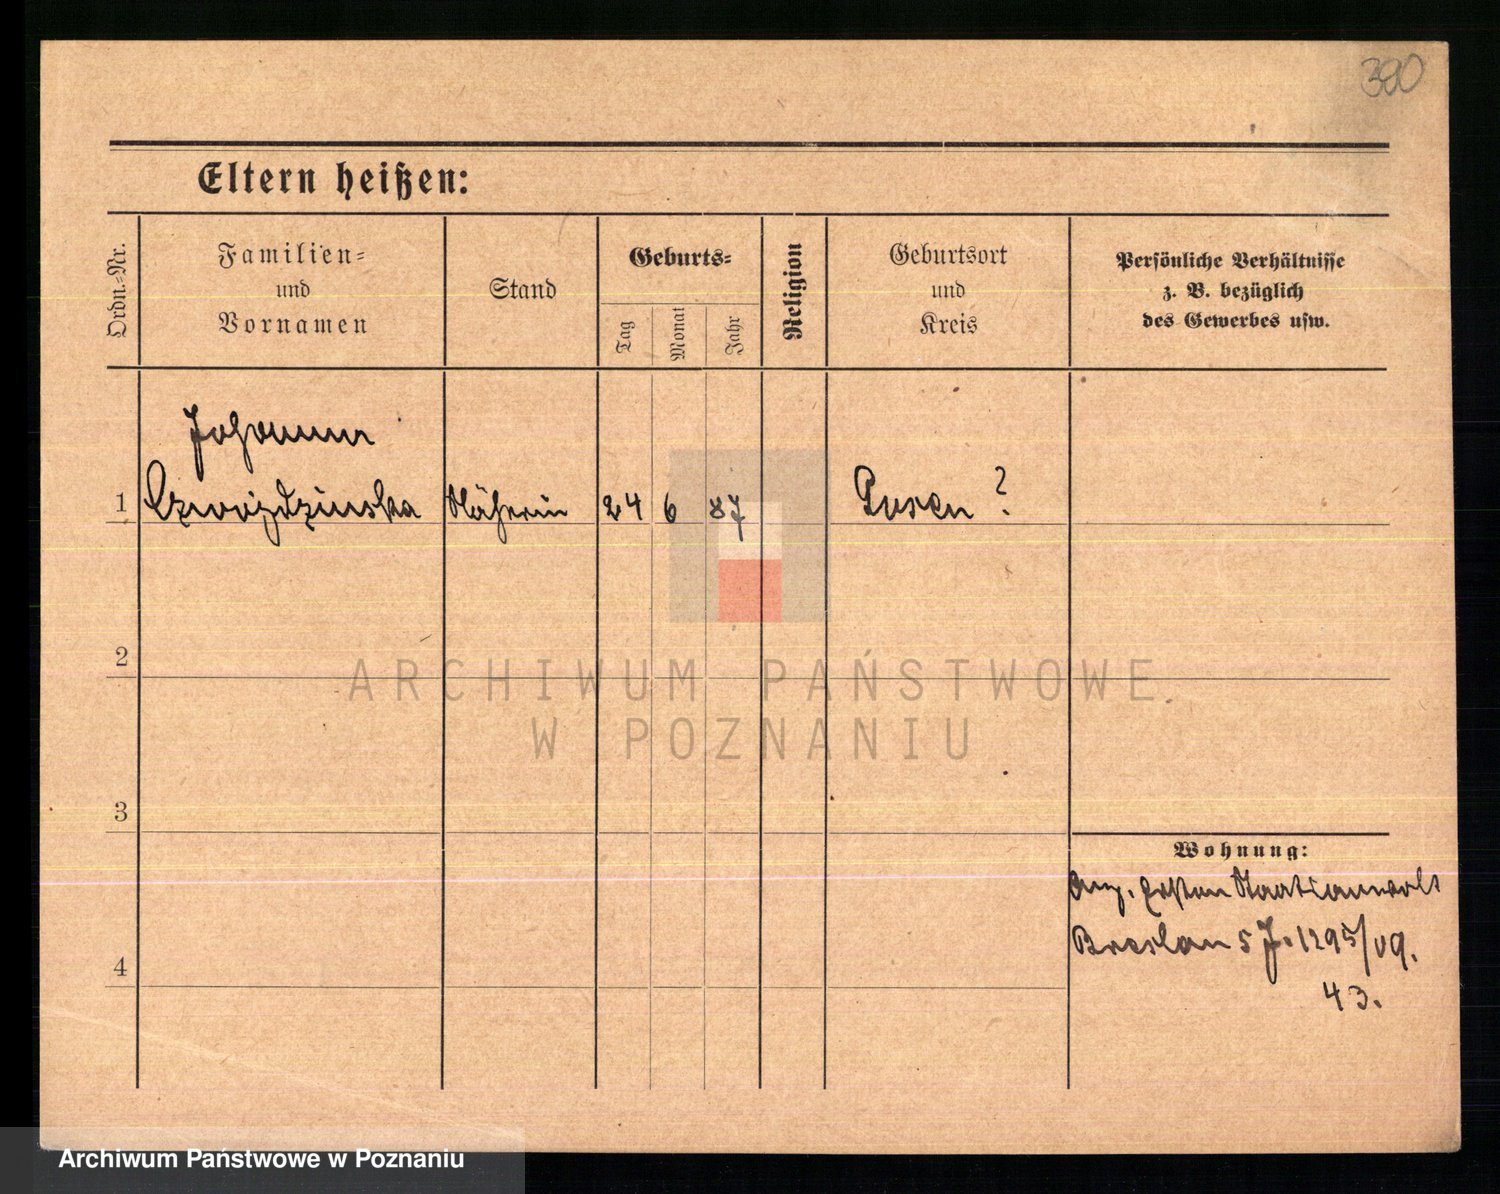 380
Eltern heißen:
Ordn.=Nr.
Familien=
und
Vornamen
Stand
Geburts=
Tag
Monat
Jahr
Religion
Geburtsort
und
Kreis
Persönliche Verhältnisse
z. B. bezüglich
des Gewerbes usw.
Johanna
1 Näherin 24 6 87 Posen ?
2
3
Wohnung:
Ersten Staatsanwalt
Breslau 5 J. 1295/09.
4
43.
ARCHIWUM PAŃSTWOWE
W POZNANIU
Archiwum Państwowe w Poznaniu